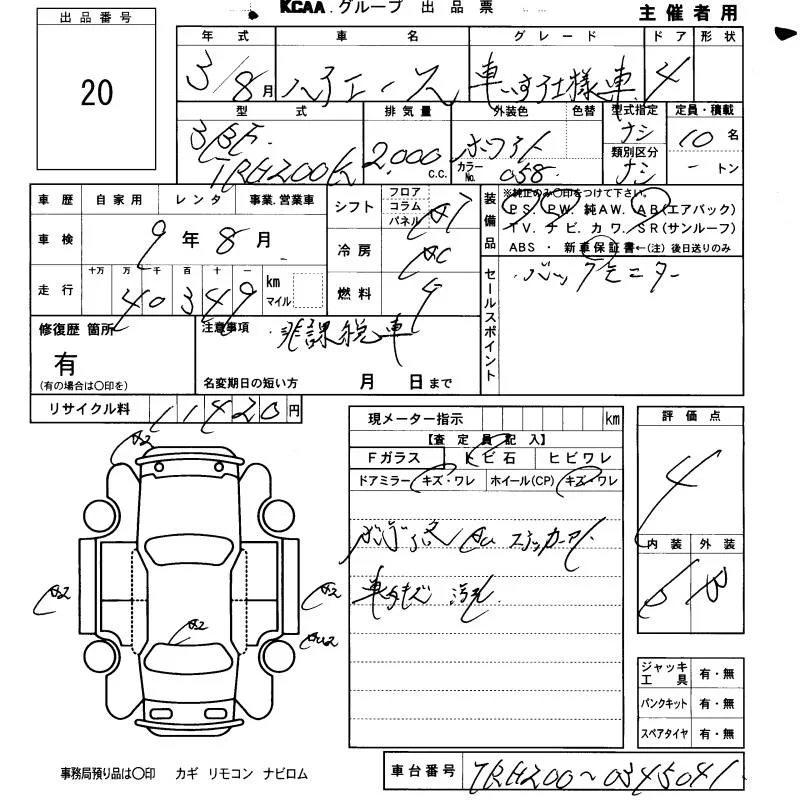 KCAA.グループ 出品票
主催者用
出品番号
20
年式 車名 グレード ドア 形状
3/8月 ハイエース 車いす仕様車 4
型式 排気量 外装色 色替 型式指定 定員・積載
3BF TRH200K 2,000c.c. ホワイト カラーNo. 058 ナシ 10名
類別区分 ナシ －トン
車歴 自家用 レンタ 事業.営業車
車検 9年8月
走行 十万 万 千 百 十 一 km マイル
40349
シフト フロア コラム パネル AT
冷房 AC
燃料
装備品 ※純正のみ○印をつけて下さい。
PS. PW. 純AW. AB(エアバック)
TV. ナビ. カワ. SR(サンルーフ)
ABS ・ 新車保証書←(注) 後日送りのみ
セールスポイント
バックモニター
修復歴 箇所
有
(有の場合は○印を)
注意事項 非課税車
名変期日の短い方 月 日まで
リサイクル料 11420円
現メーター指示 km
【査定員記入】
Fガラス トビ石 ヒビワレ
ドアミラー キズ・ワレ ホイール(CP) キズ・ワレ
評価点
4
内装 外装
B
A2
A2
A2
A2
ジャッキ工具 有・無
パンクキット 有・無
スペアタイヤ 有・無
事務局預り品は○印 カギ リモコン ナビロム
車台番号 TRH200～0345041